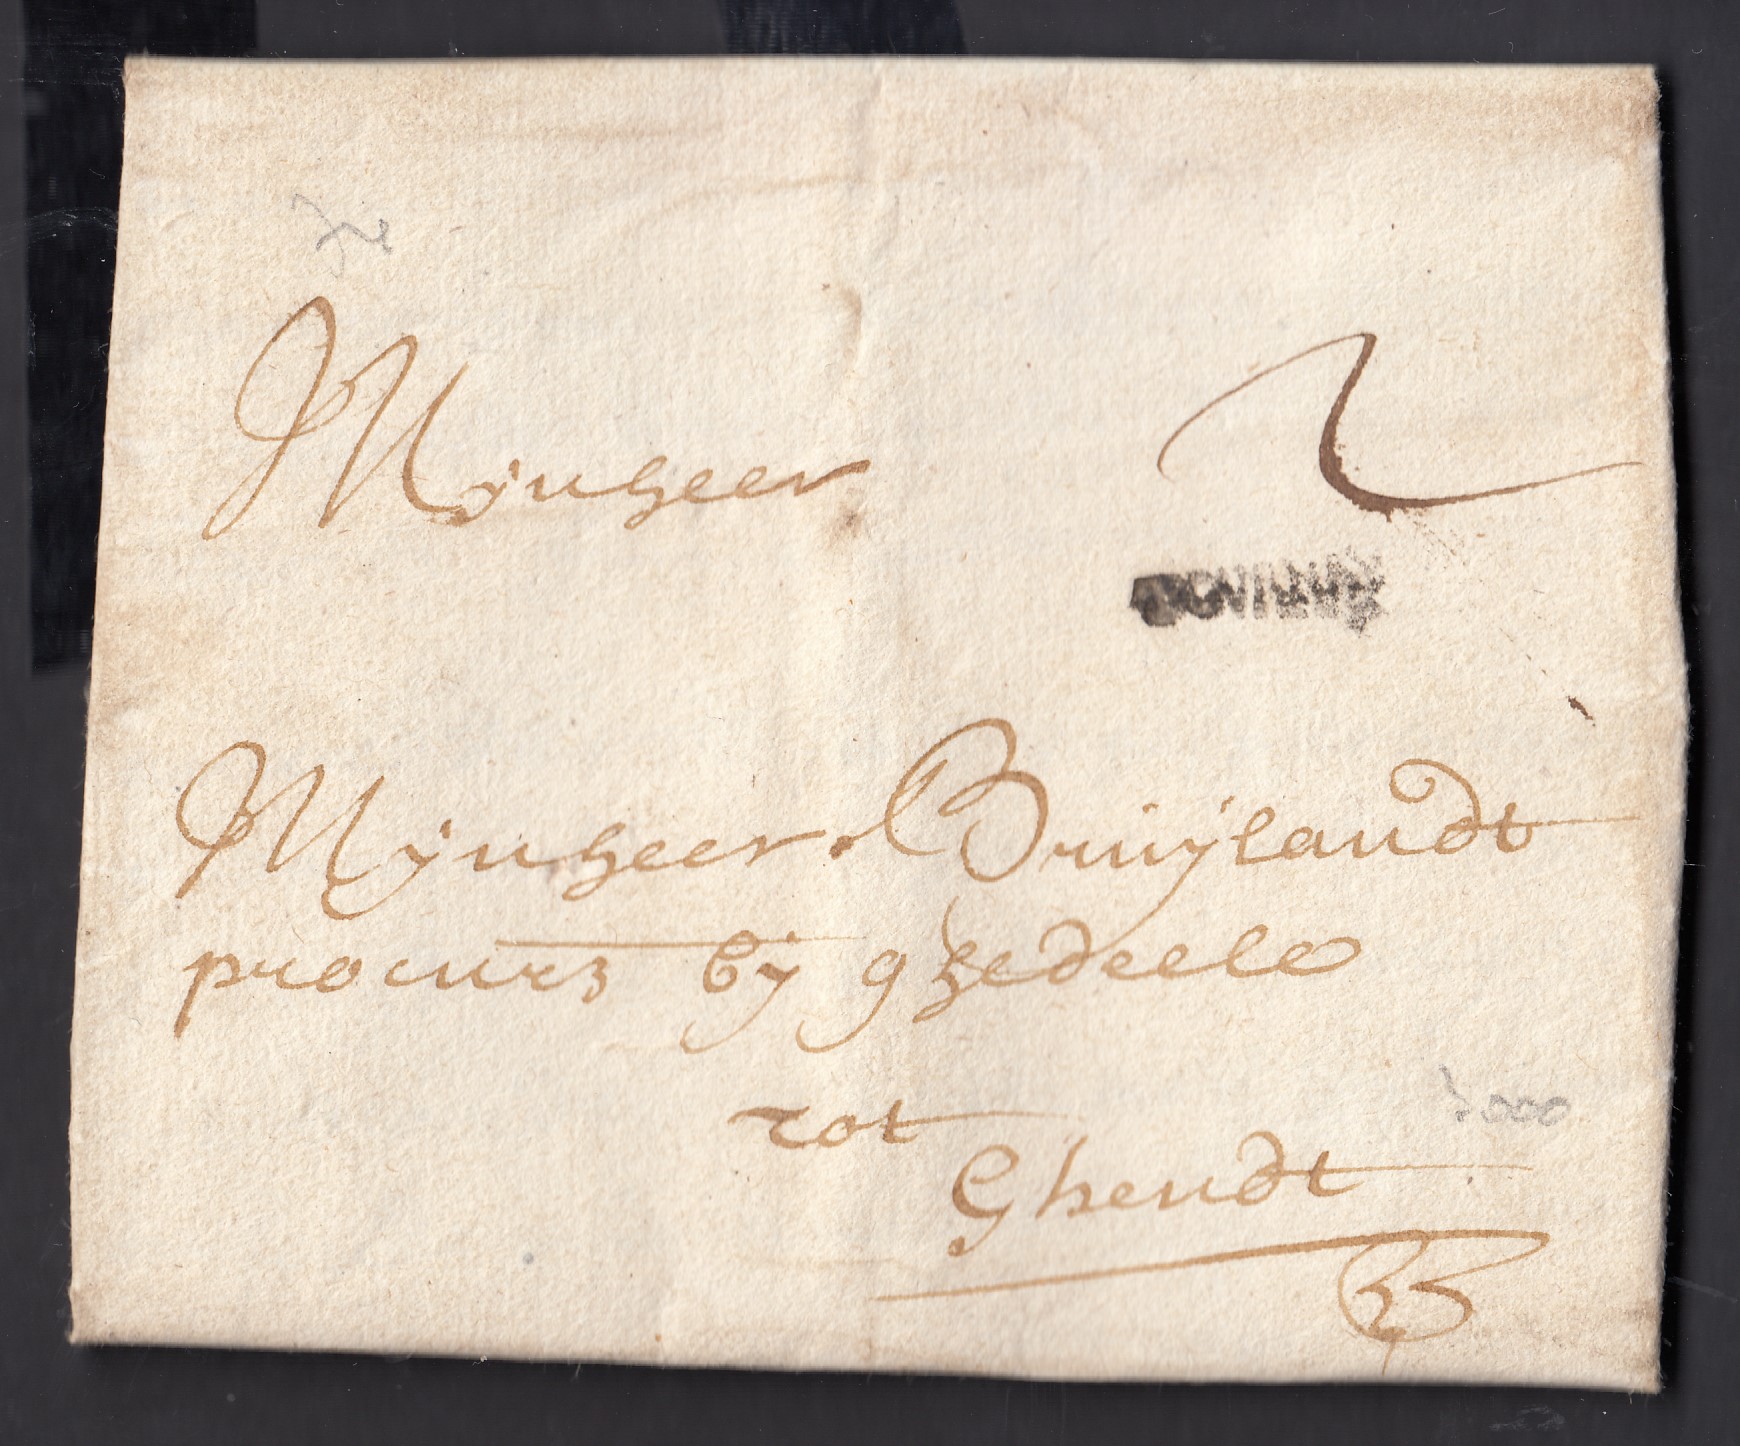 Mijnheer 2
Mijnheer Bruijlandt
procurs bij ghedeele
tot
Ghendt